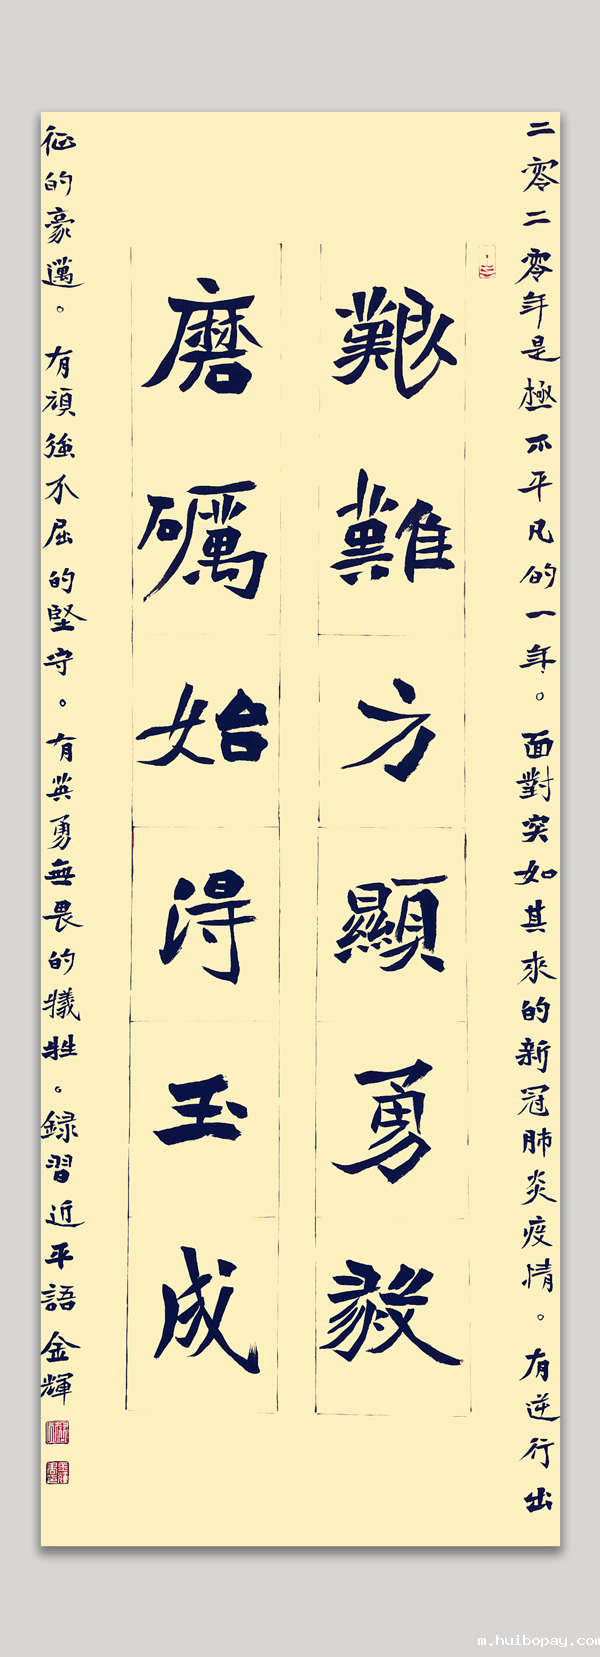 二零二零年是極不平凡的一年。面對突如其來的新冠肺炎疫情。有逆行出
艱難方顯勇毅
磨礪始得玉成
征的豪邁。有頑強不屈的堅守。有英勇無畏的犧牲。録習近平語 金輝
m.huibopay.com